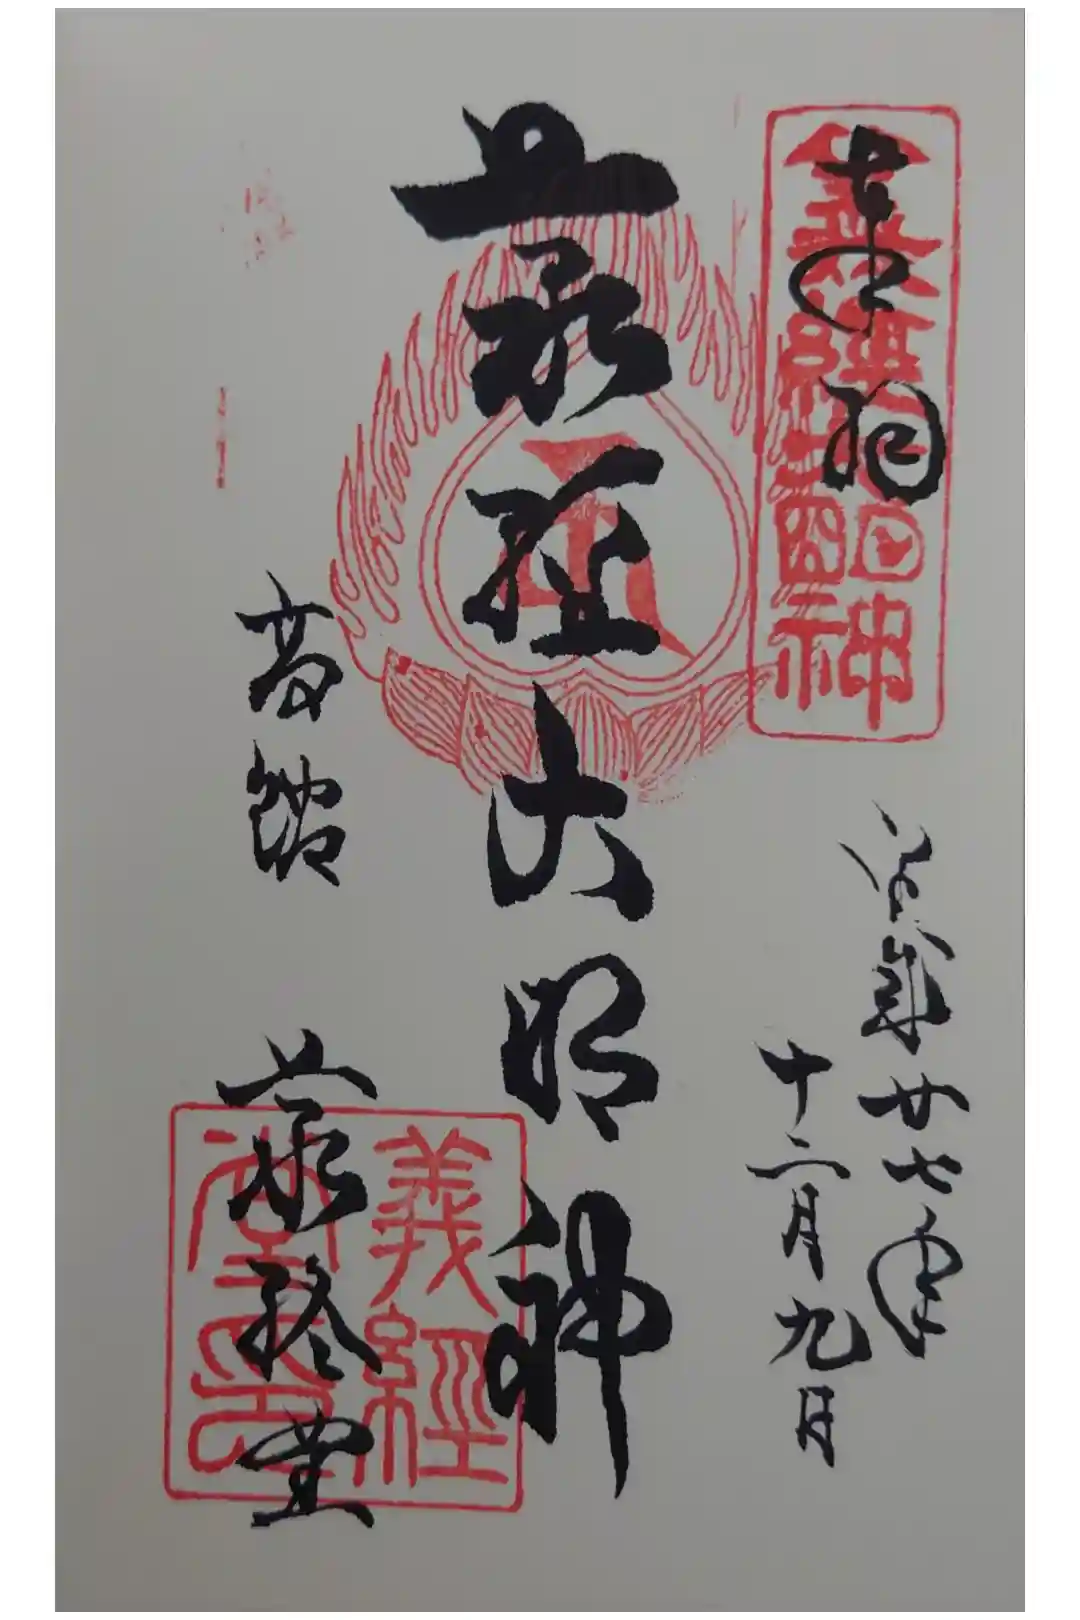 奉
義經大明神
平成廿七年
十二月九日
義経大明神
高館
義経堂
義經
堂印